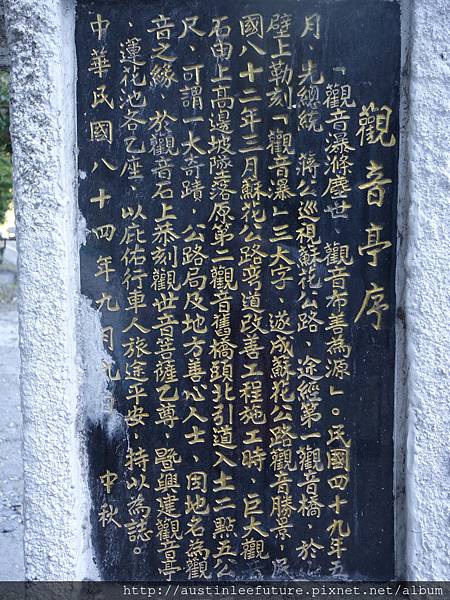 觀音亭序
「觀音瀑滌塵世、觀音布善為源」。民國四十九年五
月、先總統　蔣公巡視蘇花公路、途經第一觀音橋，於
壁上勒刻「觀音瀑」三大字、遂成蘇花公路觀音勝景，民
國八十二年三月蘇花公路彎道改善工程施工時　巨大觀
石由上高邊坡墜落原第二觀音舊橋頭北引道入土二點五公
尺，可謂一大奇蹟，公路局及地方善心人士、因地名為觀
音之緣、於觀音石上恭刻觀世音菩薩乙尊，暨興建觀音亭
、蓮花池各乙座，以庇佑行車人旅途平安，特以為誌。
中華民國八十四年九月九日　中秋
http://austinleefuture.pixnet.net/album